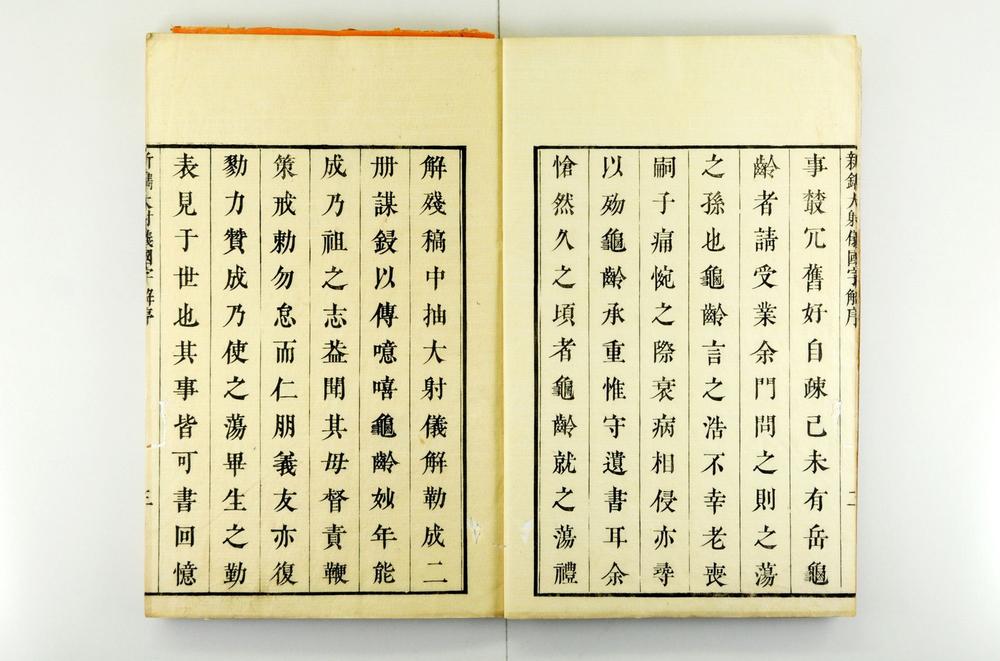 新鐫大射儀國字解序 二
事叢冗舊好自疎己未有岳龜
齡者請受業余門問之則之蕩
之孫也龜齡言之浩不幸老喪
嗣子痛惋之際衰病相侵亦尋
以歿龜齡承重惟守遺書耳余
愴然久之頃者龜齡就之蕩禮
解殘稿中抽大射儀解勒成二
册謀鋟以傳噫嘻龜齡妙年能
成乃祖之志葢聞其母督責鞭
策戒勅勿怠而仁朋義友亦復
勠力贊成乃使之蕩畢生之勤
表見于世也其事皆可書回憶
新鐫大射儀國字解序 三